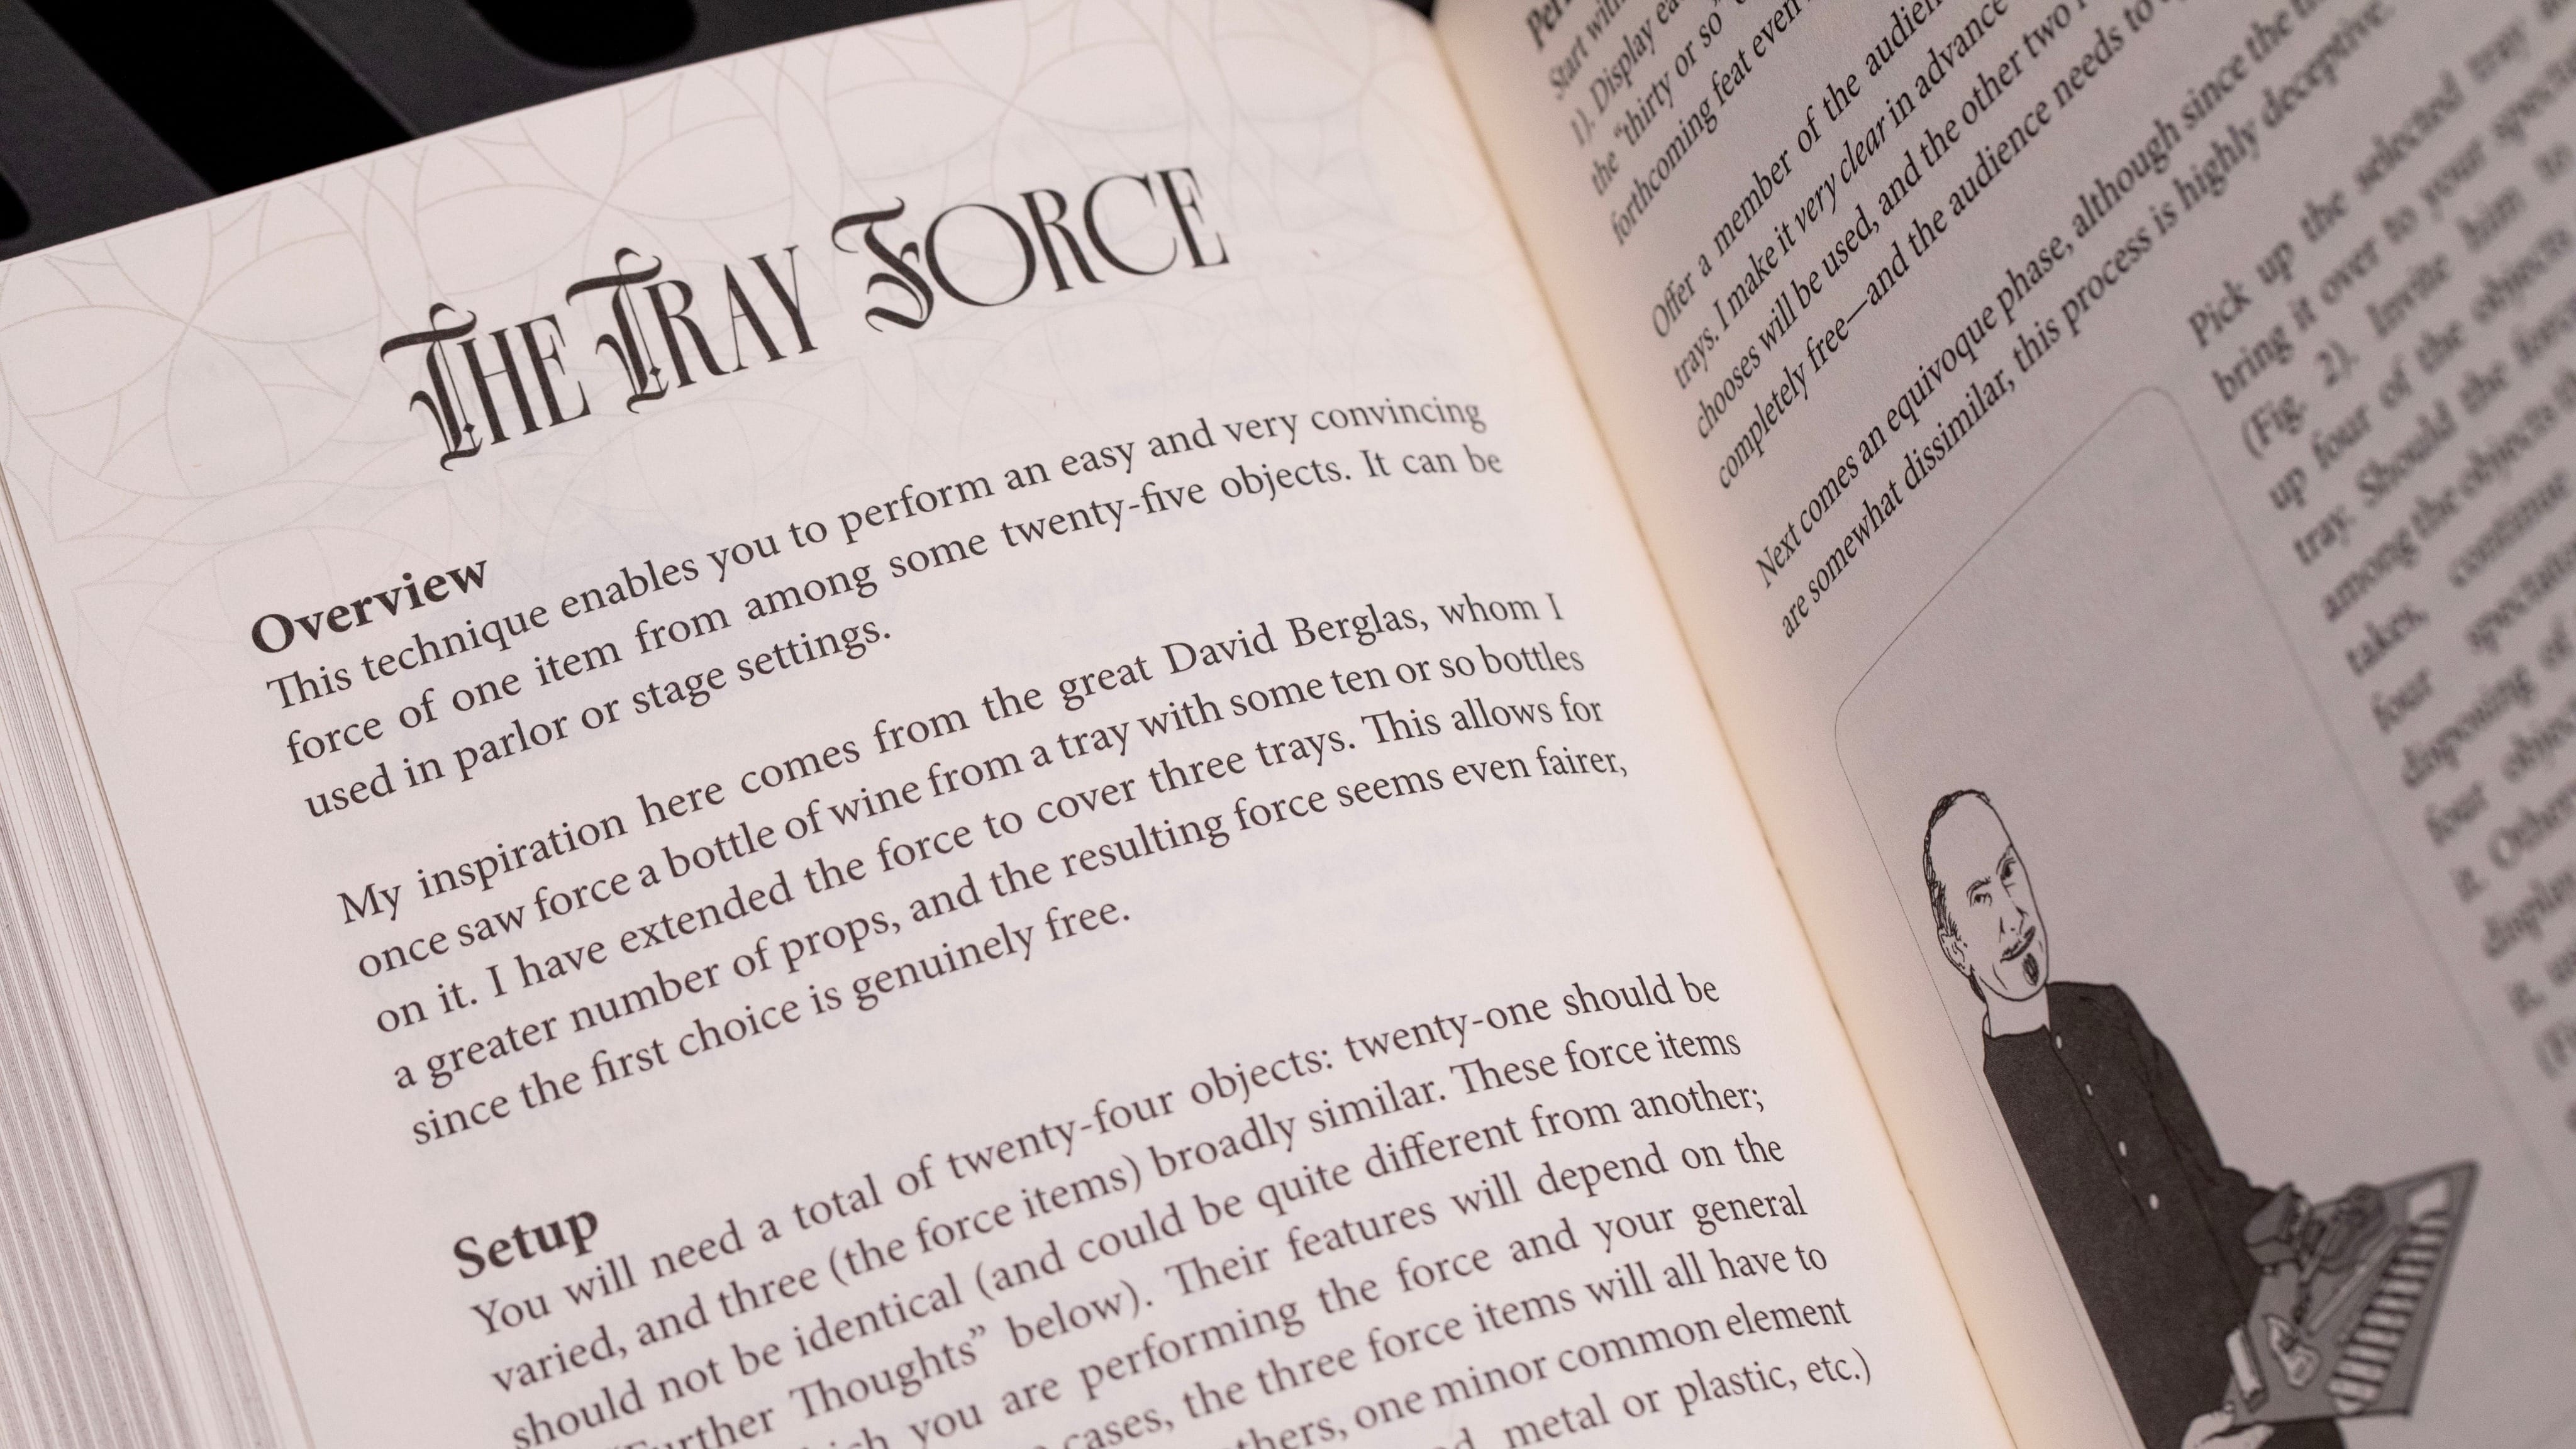 THE TRAY FORCE
Overview
This technique enables you to perform an easy and very convincing
force of one item from among some twenty-five objects. It can be
used in parlor or stage settings.
My inspiration here comes from the great David Berglas, whom I
once saw force a bottle of wine from a tray with some ten or so bottles
on it. I have extended the force to cover three trays. This allows for
a greater number of props, and the resulting force seems even fairer,
since the first choice is genuinely free.
Setup
You will need a total of twenty-four objects: twenty-one should be
varied, and three (the force items) broadly similar. These force items
should not be identical (and could be quite different from another;
Further Thoughts” below). Their features will depend on the
you are performing the force and your general
cases, the three force items will all have to
one minor common element
metal or plastic, etc.)
Start with
1). Display
the “thirty or so”
forthcoming feat even
Offer a member of the audien
trays. I make it very clear in advance
chooses will be used, and the other two
completely free—and the audience needs to
Next comes an equivoque phase, although since the
are somewhat dissimilar, this process is highly deceptive.
Pick up the selected tray
bring it over to your
(Fig. 2). Invite him to
up four of the objects
tray. Should the force
among the objects
takes, continue
four
disposing of
four
it.